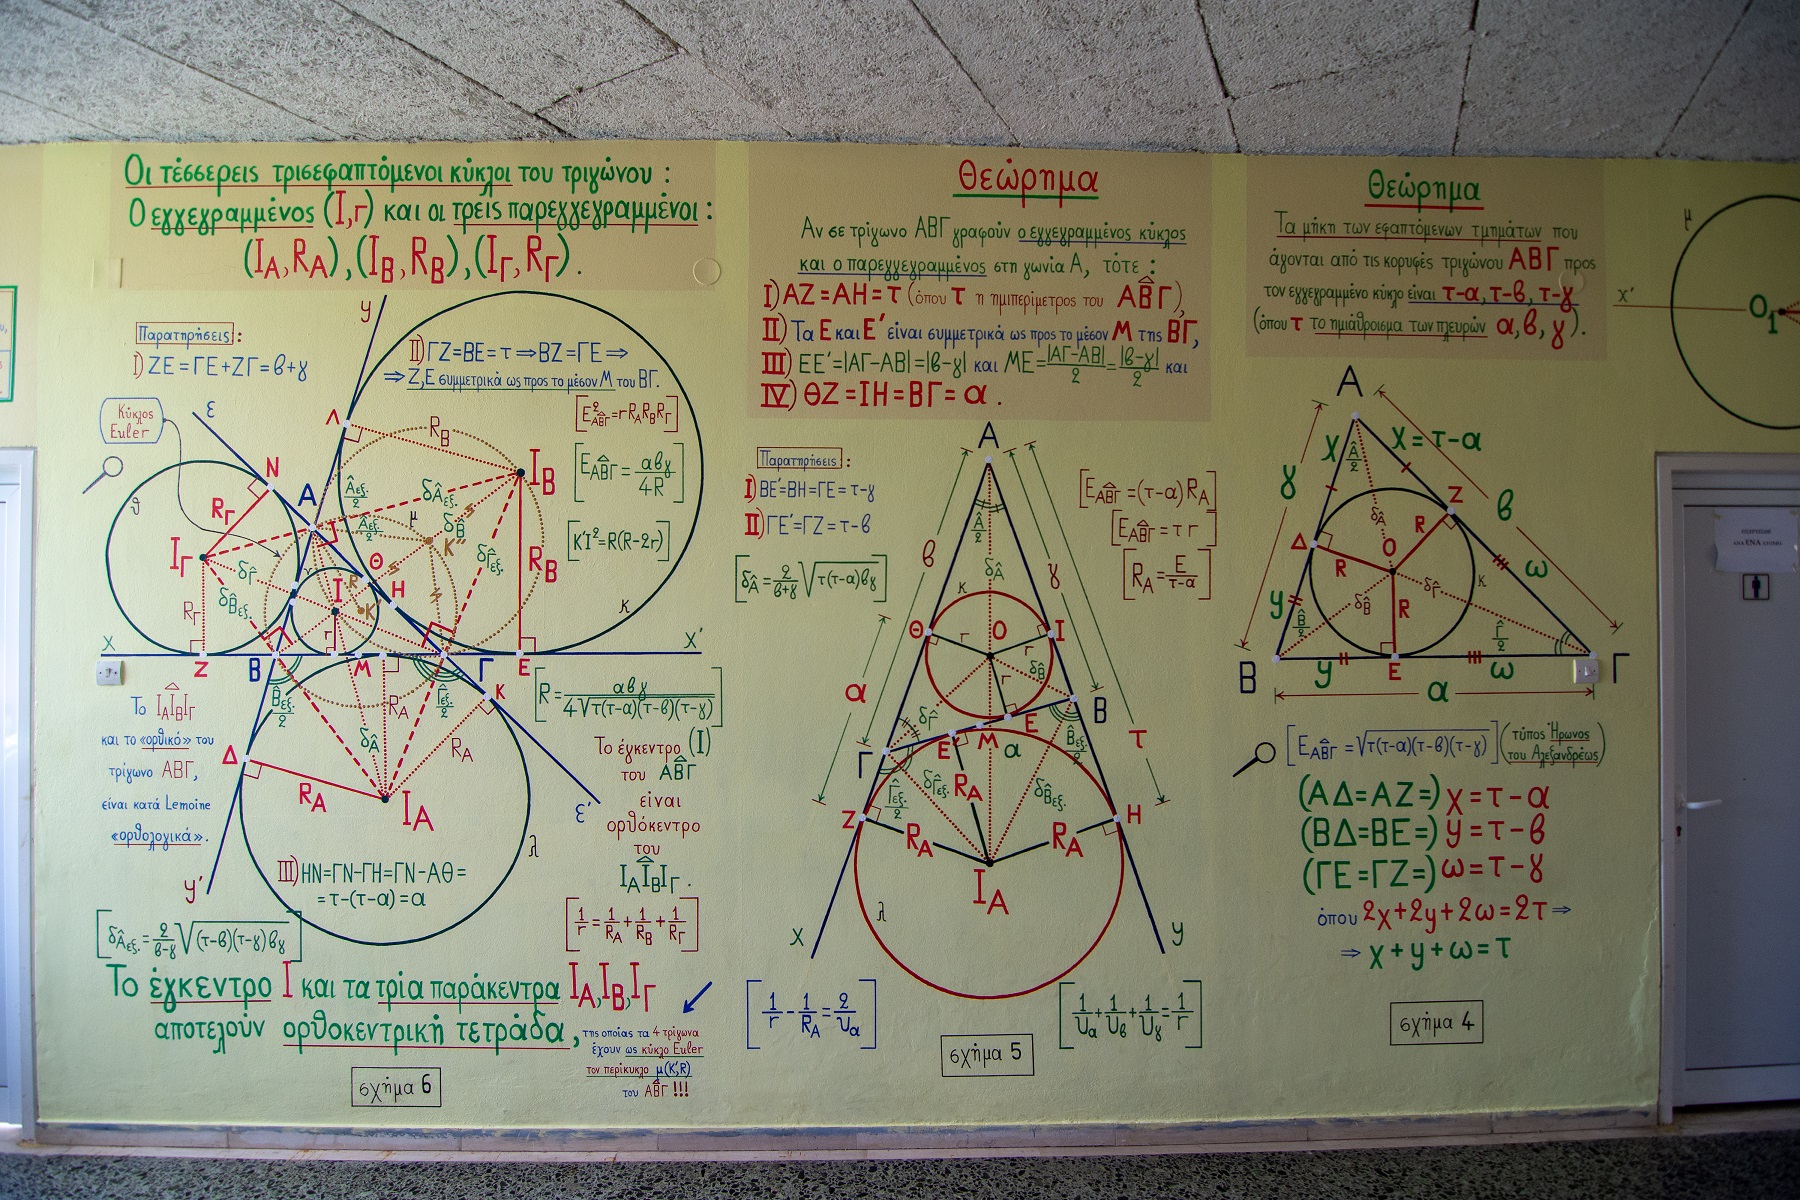 Οι τέσσερεις τρισεφαπτόμενοι κύκλοι του τριγώνου :
Ο εγγεγραμμένος (Ι,r) και οι τρεις παρεγγεγραμμένοι :
(Ι_Α, R_A), (Ι_Β, R_B), (Ι_Γ, R_Γ).
Παρατηρήσεις :
Ι) ΖΕ = ΓΕ + ΖΓ = β+γ
ΙΙ) ΓΖ=ΒΕ=τ ⇒ ΒΖ=ΓΕ ⇒
⇒ Ζ,Ε συμμετρικά ως προς το μέσον Μ του ΒΓ.
Κύκλος
Euler
[Ε²_ΑΒΓ = r R_A R_B R_Γ]
[Ε_ΑΒΓ = αβγ/4R]
[Κ'Ι² = R(R-2r)]
y
ε
Λ
R_B
Ι_Β
N
A
ϑ
R_Γ
Ι_Γ
μ
Κ''
Θ
H
I
K'
r
κ
x
Z
B
M
Γ
E
x'
K
[R = αβγ/4√τ(τ-α)(τ-β)(τ-γ)]
Το Ι_ΑΙ_ΒΙ_Γ
και το «ορθικό» του
τρίγωνο ΑΒΓ,
είναι κατά Lemoine
«ορθολογικά».
Δ
R_A
Ι_Α
R_A
λ
ε'
y'
Το έγκεντρο (Ι)
του ΑΒΓ
είναι
ορθόκεντρο
του
Ι_ΑΙ_ΒΙ_Γ.
ΙΙΙ) ΗΝ=ΓΝ-ΓΗ=ΓΝ-ΑΘ=
=τ-(τ-α)=α
[1/r = 1/R_A + 1/R_B + 1/R_Γ]
[δ_Αεξ. = 2/β-γ √(τ-β)(τ-γ)βγ]
Το έγκεντρο Ι και τα τρία παράκεντρα Ι_Α,Ι_Β,Ι_Γ
αποτελούν ορθοκεντρική τετράδα,
της οποίας τα 4 τρίγωνα
έχουν ως κύκλο Euler
τον περίκυκλο μ(Κ',R)
του ΑΒΓ !!!
σχήμα 6
Θεώρημα
Αν σε τρίγωνο ΑΒΓ γραφούν ο εγγεγραμμένος κύκλος
και ο παρεγγεγραμμένος στη γωνία Α, τότε :
Ι) ΑΖ=ΑΗ=τ (όπου τ η ημιπερίμετρος του ΑΒΓ),
ΙΙ) Τα Ε και Ε' είναι συμμετρικά ως προς το μέσον Μ της ΒΓ,
ΙΙΙ) ΕΕ'=|ΑΓ-ΑΒ|=|β-γ| και ΜΕ=|ΑΓ-ΑΒ|/2=|β-γ|/2 και
ΙV) ΘΖ=ΙΗ=ΒΓ=α.
Παρατηρήσεις :
Ι) ΒΕ'=ΒΗ=ΓΕ=τ-γ
ΙΙ) ΓΕ'=ΓΖ=τ-β
[δ_Α = 2/β+γ √τ(τ-α)βγ]
[Ε_ΑΒΓ = (τ-α)R_A]
[Ε_ΑΒΓ = τ r]
[R_A = Ε/τ-α]
A
β
γ
δ_Α
κ
Θ
O
I
r
r
r
δ_Β
δ_Γ
α
Γ
E'
M
E
B
α
τ
Z
H
R_A
R_A
R_A
Ι_Α
λ
x
y
[1/r - 1/R_A = 2/υ_α]
[1/υ_α + 1/υ_β + 1/υ_γ = 1/r]
σχήμα 5
Θεώρημα
Τα μήκη των εφαπτόμενων τμημάτων που
άγονται από τις κορυφές τριγώνου ΑΒΓ προς
τον εγγεγραμμένο κύκλο είναι τ-α, τ-β, τ-γ
(όπου τ το ημιάθροισμα των πλευρών α, β, γ).
A
x
A/2
x = τ-α
γ
β
Z
Δ
δ_Α
O
R
R
R
κ
δ_Β
δ_Γ
ω
y
B/2
Γ/2
B
y
E
ω
Γ
α
[Ε_ΑΒΓ = √τ(τ-α)(τ-β)(τ-γ)] (τύπος Ήρωνος
του Αλεξανδρέως)
(ΑΔ=ΑΖ=) x = τ-α
(ΒΔ=ΒΕ=) y = τ-β
(ΓΕ=ΓΖ=) ω = τ-γ
όπου 2x+2y+2ω=2τ ⇒
⇒ x+y+ω=τ
σχήμα 4
μ
x'
O₁